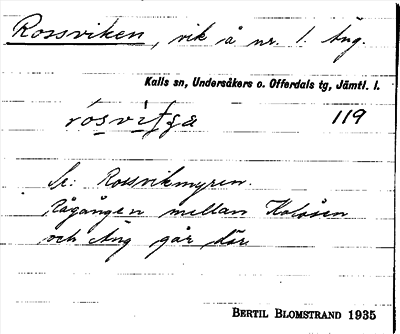 Rossviken, vik å nr. 1. Äng.
Kalls sn, Undersåkers o. Offerdals tg, Jämtl. l.
119
Se: Rossvikmyren.
Rågången mellan Kolåsen
och Äng går där
BERTIL BLOMSTRAND 1935